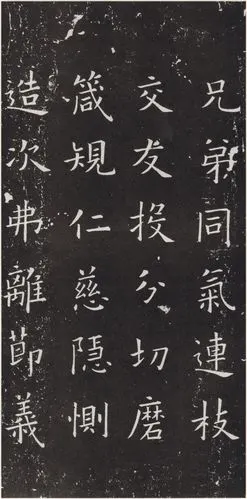 兄弟同氣連枝
交友投分切磨
箴規仁慈隱惻
造次弗離節義